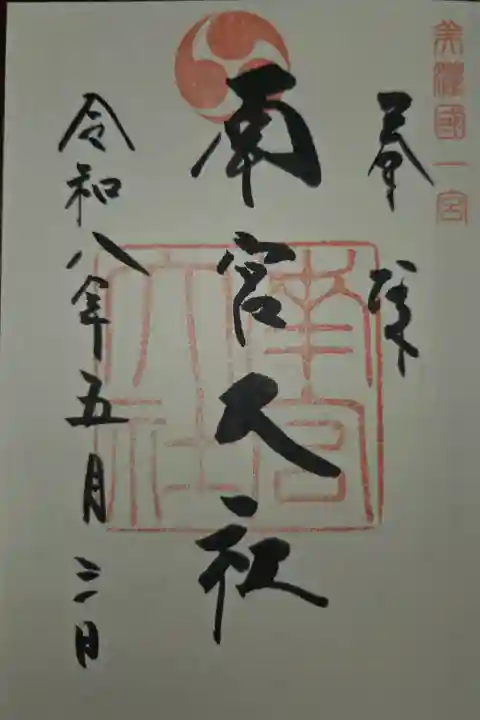 美濃國一宮
奉拝
南宮大社
南宮大社
令和八年五月三日